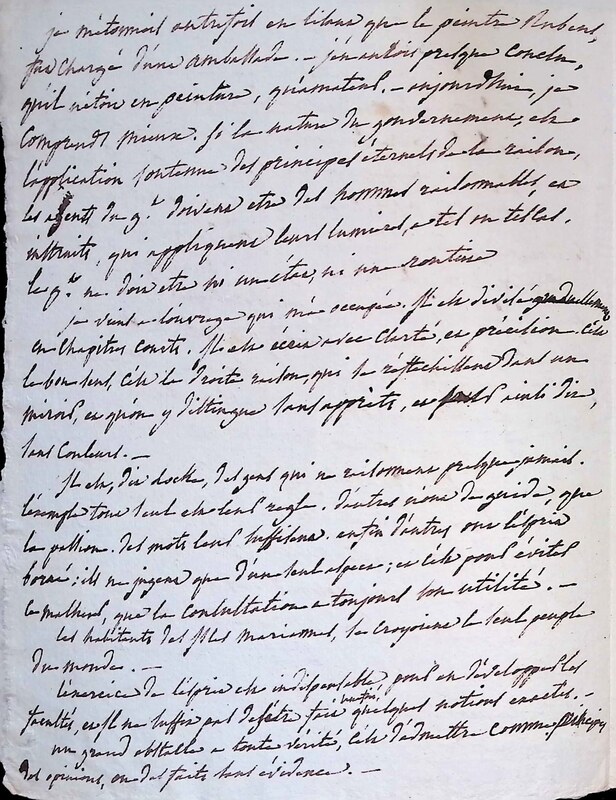 je m'étonnois autrefois en lisant que le peintre Rubens,
fut chargé d'une ambassade. - j'en aurois presque conclu,
qu'il n'étoit en peinture, qu'amateur. - aujourd'hui, je
comprends mieux. si la nature du gouvernement, est
l'application soutenue des principes éternels de la raison,
les agents du g.t doivent etre des hommes raisonnables, et
instruits, qui appliquent leurs lumieres, a tel ou tel cas.
le g.t ne doit etre ni un état, ni une routine
je viens a l'ouvrage qui m'a occupée. Il est divisé graduellement
en chapitres courts. Il est écrit avec clarté, et précision. c'est
le bon sens, c'est la droite raison, qui se réfléchissent dans un
miroir, et qu'on y distingue sans apprets, et ainsi dire,
sans couleurs. -
Il est, dit Locke, des gens qui ne raisonnent presque jamais.
l'exemple tout seul est leur regle. d'autres n'ont de guide, que
la passion. des mots leur suffisent. enfin d'autres ont l'esprit
borné; ils ne jugent que d'un seul aspect; et c'est pour éviter
ce malheur, que la consultation a toujours son utilité. -
les habitants des Isles Mariannes, se croyoient le seul peuple
du monde. -
l'exercice de l'esprit est indispensable, pour en développer les
facultés, et Il ne suffit pas de s'etre fait quelques notions exactes. -
un grand obstacle a toute vérité, c'est d'admettre comme principes
des opinions, ou des faits sans évidence. -